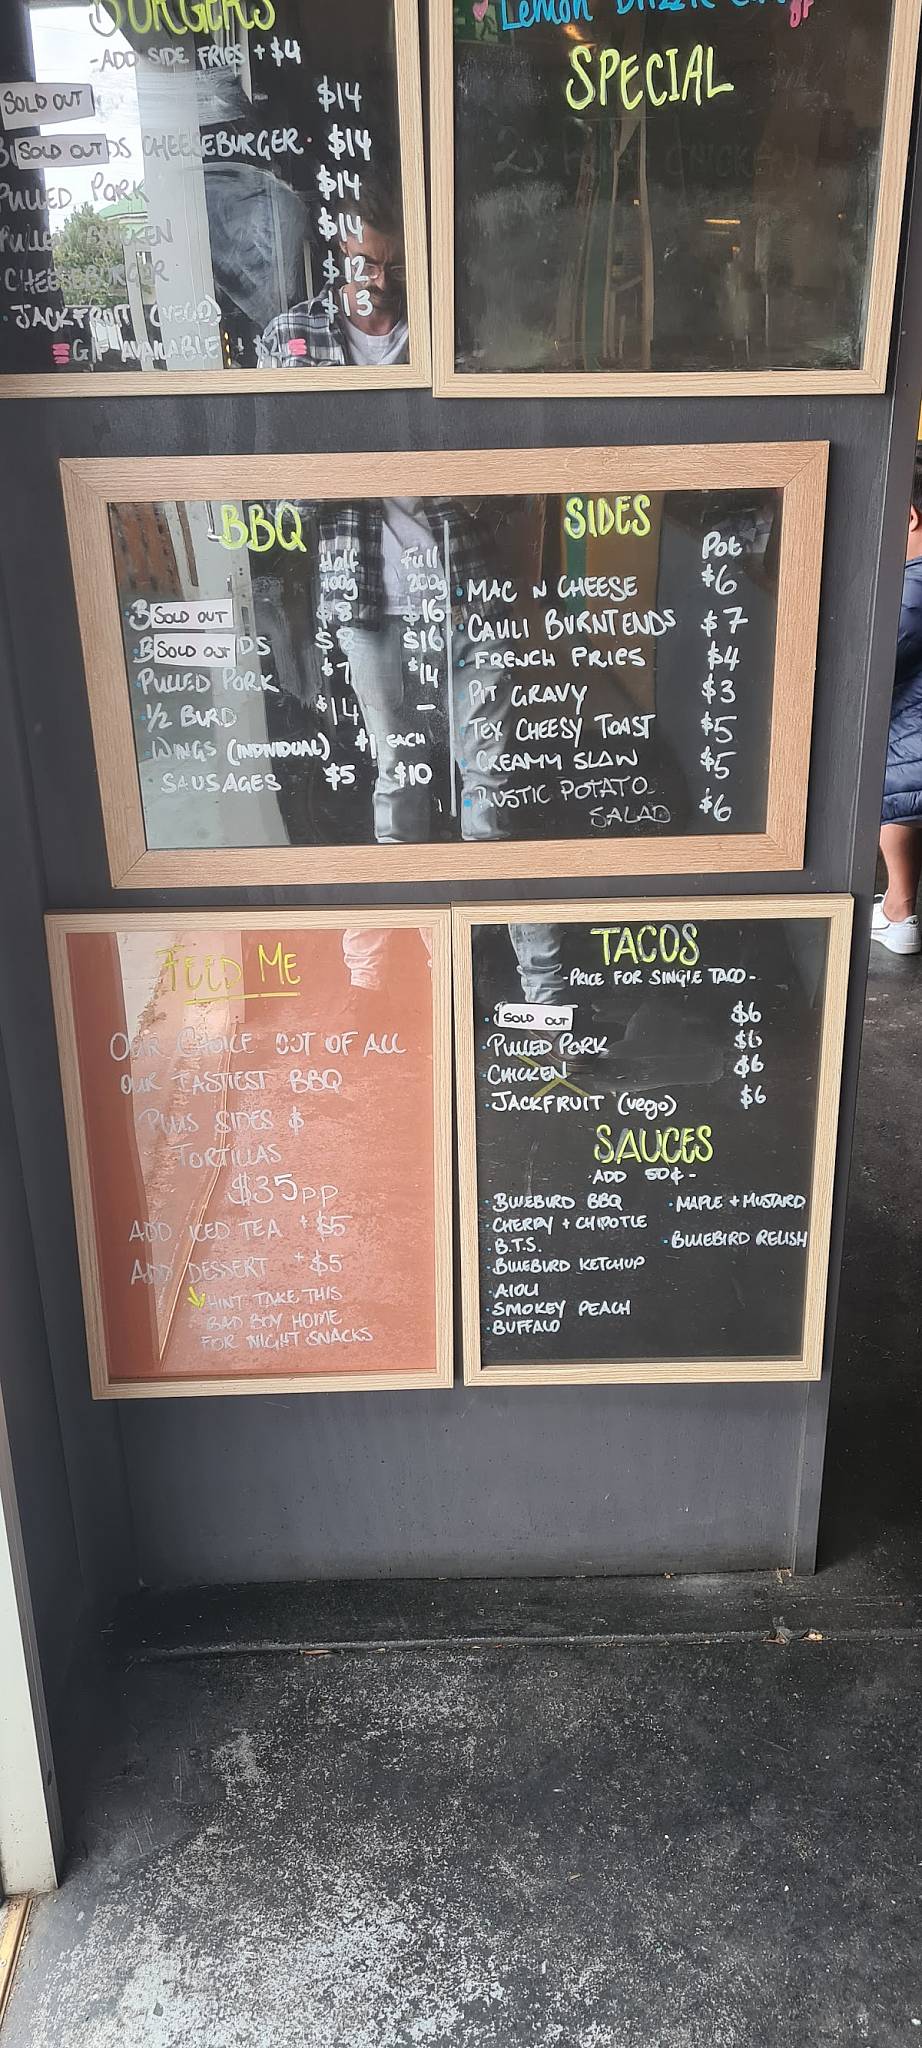 BURGERS
-ADD SIDE FRIES + $4
SOLD OUT $14
SOLD OUT DS CHEESEBURGER $14
PULLED PORK $14
PULLED CHICKEN $14
CHEESEBURGER $12
JACKFRUIT (VEGO) $13
GF AVAILABLE + $2
Lemon Drizzle GF
SPECIAL
BBQ
Half 100g Full 200g
B SOLD OUT $8 $16
B SOLD OUT DS $8 $16
PULLED PORK $7 $14
1/2 BIRD $14 -
WINGS (INDIVIDUAL) $1 EACH
SAUSAGES $5 $10
SIDES
Pot
MAC N CHEESE $6
CAULI BURNT ENDS $7
FRENCH FRIES $4
PIT GRAVY $3
TEX CHEESY TOAST $5
CREAMY SLAW $5
RUSTIC POTATO
SALAD $6
FEED ME
OUR CHOICE OUT OF ALL
OUR TASTIEST BBQ
PLUS SIDES &
TORTILLAS
$35pp
ADD ICED TEA + $5
ADD DESSERT + $5
HINT TAKE THIS
BAD BOY HOME
FOR NIGHT SNACKS
TACOS
-PRICE FOR SINGLE TACO-
SOLD OUT $6
PULLED PORK $6
CHICKEN $6
JACKFRUIT (vego) $6
SAUCES
-ADD 50¢-
BLUEBIRD BBQ
CHERRY + CHIPOTLE
B.T.S.
BLUEBIRD KETCHUP
AIOLI
SMOKEY PEACH
BUFFALO
MAPLE + MUSTARD
BLUEBIRD RELISH